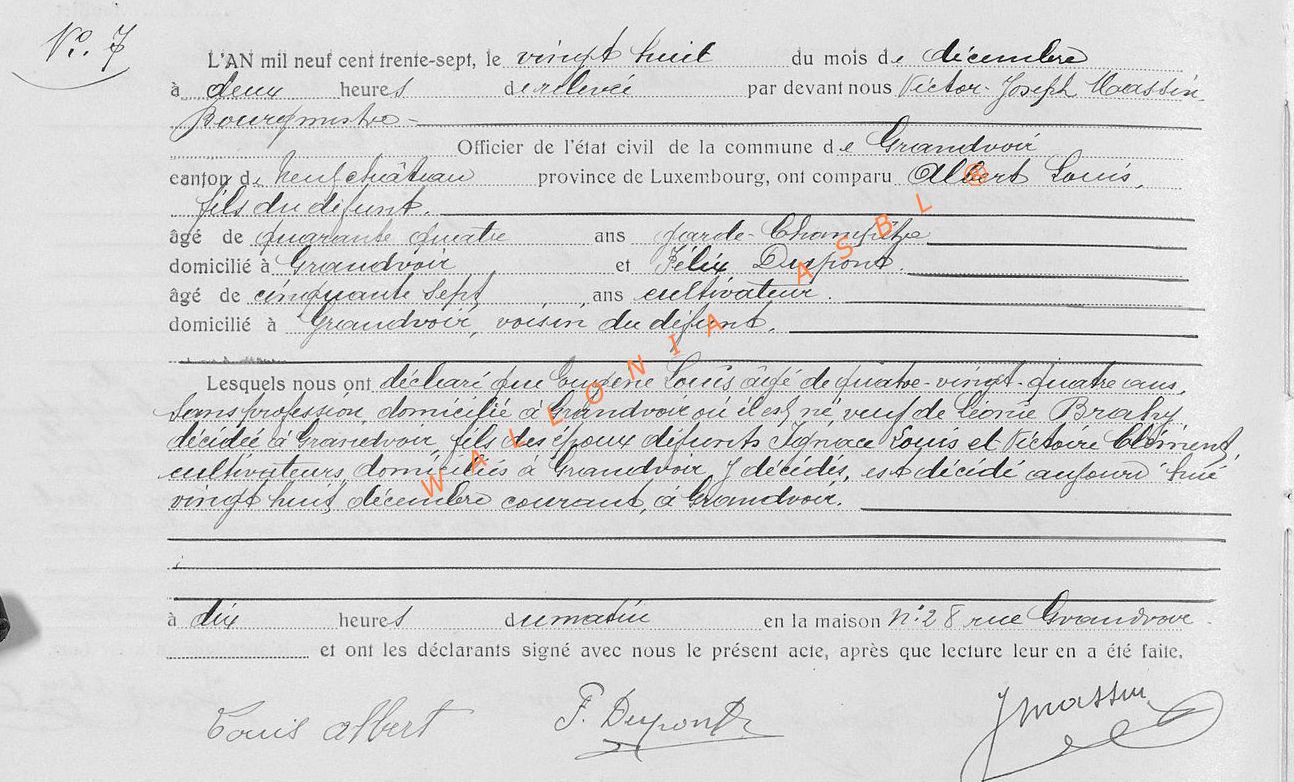 No. 7
L'AN mil neuf cent trente-sept, le vingt huit du mois de décembre
à deux heures de relevée par devant nous Victor Joseph Massin
Bourgmestre
Officier de l'état civil de la commune de Grandvoir
canton de Neufchâteau province de Luxembourg, ont comparu Albert Louis,
fils du défunt.
âgé de quarante quatre ans garde-Champêtre
domicilié à Grandvoir et Félix Dupont.
âgé de cinquante sept ans cultivateur.
domicilié à Grandvoir, voisin du défunt.
Lesquels nous ont déclaré que Eugène Louis âgé de quatre-vingt-quatre ans,
sans profession, domicilié à Grandvoir où il est né, veuf de Léonie Brahy
décédée à Grandvoir, fils des époux défunts Ignace Louis et Victoire Clément,
cultivateurs, domiciliés à Grandvoir, y décédés, est décédé aujourd'hui
vingt huit décembre courant, à Grandvoir.
à dix heures du matin en la maison N° 28 rue Grandvoir
et ont les déclarants signé avec nous le présent acte, après que lecture leur en a été faite.
Louis Albert F. Dupont J Massin
WALLONIA ASBL ®